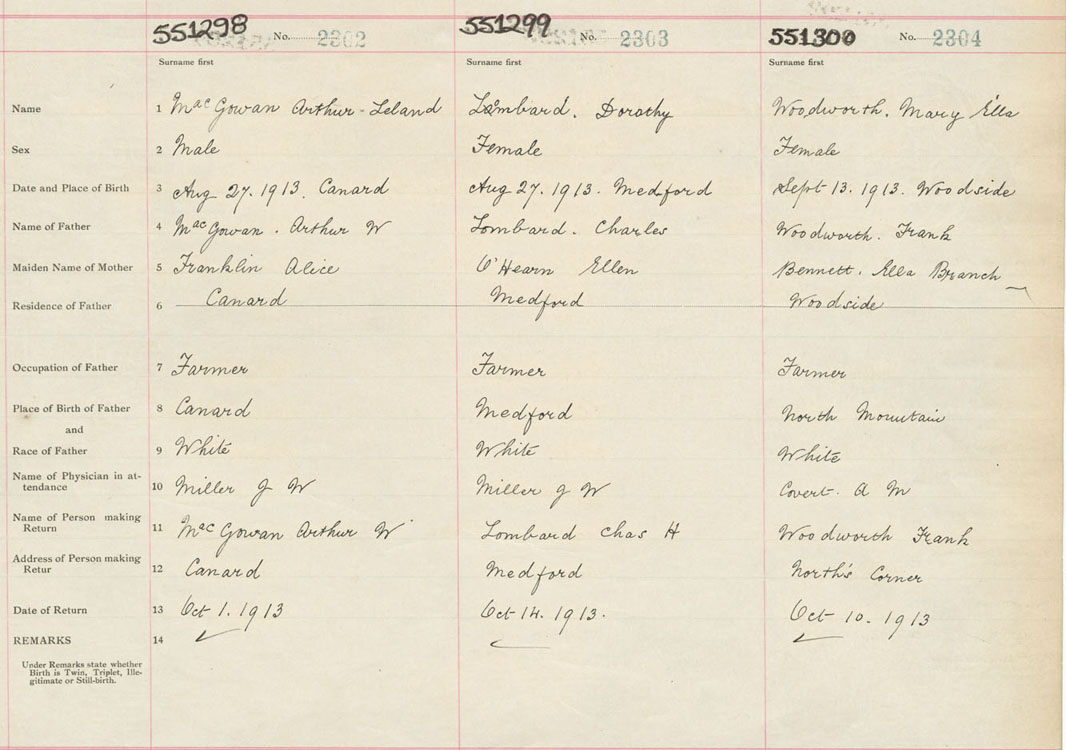 551298 No. 2302 551299 No. 2303 551300 No. 2304
Surname first Surname first Surname first
Name 1 MacGowan Arthur - Leland Lombard. Dorothy Woodworth. Mary Ella
Sex 2 Male Female Female
Date and Place of Birth 3 Aug 27. 1913. Canard Aug 27. 1913. Medford Sept 13. 1913. Woodside
Name of Father 4 MacGowan. Arthur W Lombard. Charles Woodworth. Frank
Maiden Name of Mother 5 Franklin Alice O'Hearn Ellen Bennett. Ella Branch
Residence of Father 6 Canard Medford Woodside
Occupation of Father 7 Farmer Farmer Farmer
Place of Birth of Father 8 Canard Medford North Mountain
and
Race of Father 9 White White White
Name of Physician in at-
tendance 10 Miller J W Miller J W Covert. A M
Name of Person making
Return 11 MacGowan Arthur W Lombard Chas H Woodworth Frank
Address of Person making
Retur 12 Canard Medford North's Corner
Date of Return 13 Oct 1. 1913 Oct 14. 1913. Oct 10. 1913
REMARKS 14
Under Remarks state whether
Birth is Twin, Triplet, Ille-
gitimate or Still-birth.